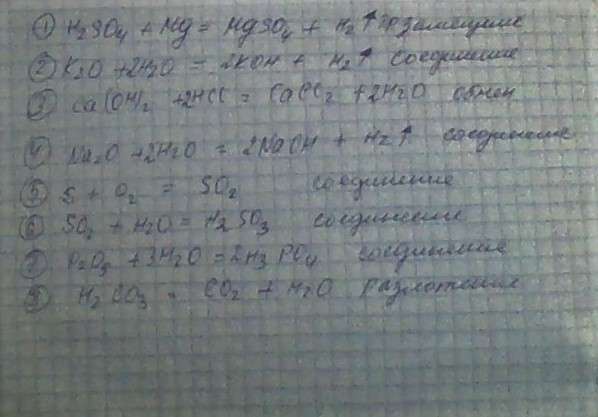 ① H₂SO₄ + Mg = MgSO₄ + H₂↑ замещение
② K₂O + 2H₂O = 2KOH + H₂↑ соединение
③ Ca(OH)₂ + 2HCl = CaCl₂ + 2H₂O обмен
④ Na₂O + 2H₂O = 2NaOH + H₂↑ соединение
⑤ S + O₂ = SO₂ соединение
⑥ SO₂ + H₂O = H₂SO₃ соединение
⑦ P₂O₅ + 3H₂O = 2H₃PO₄ соединение
⑧ H₂CO₃ = CO₂ + H₂O разложение